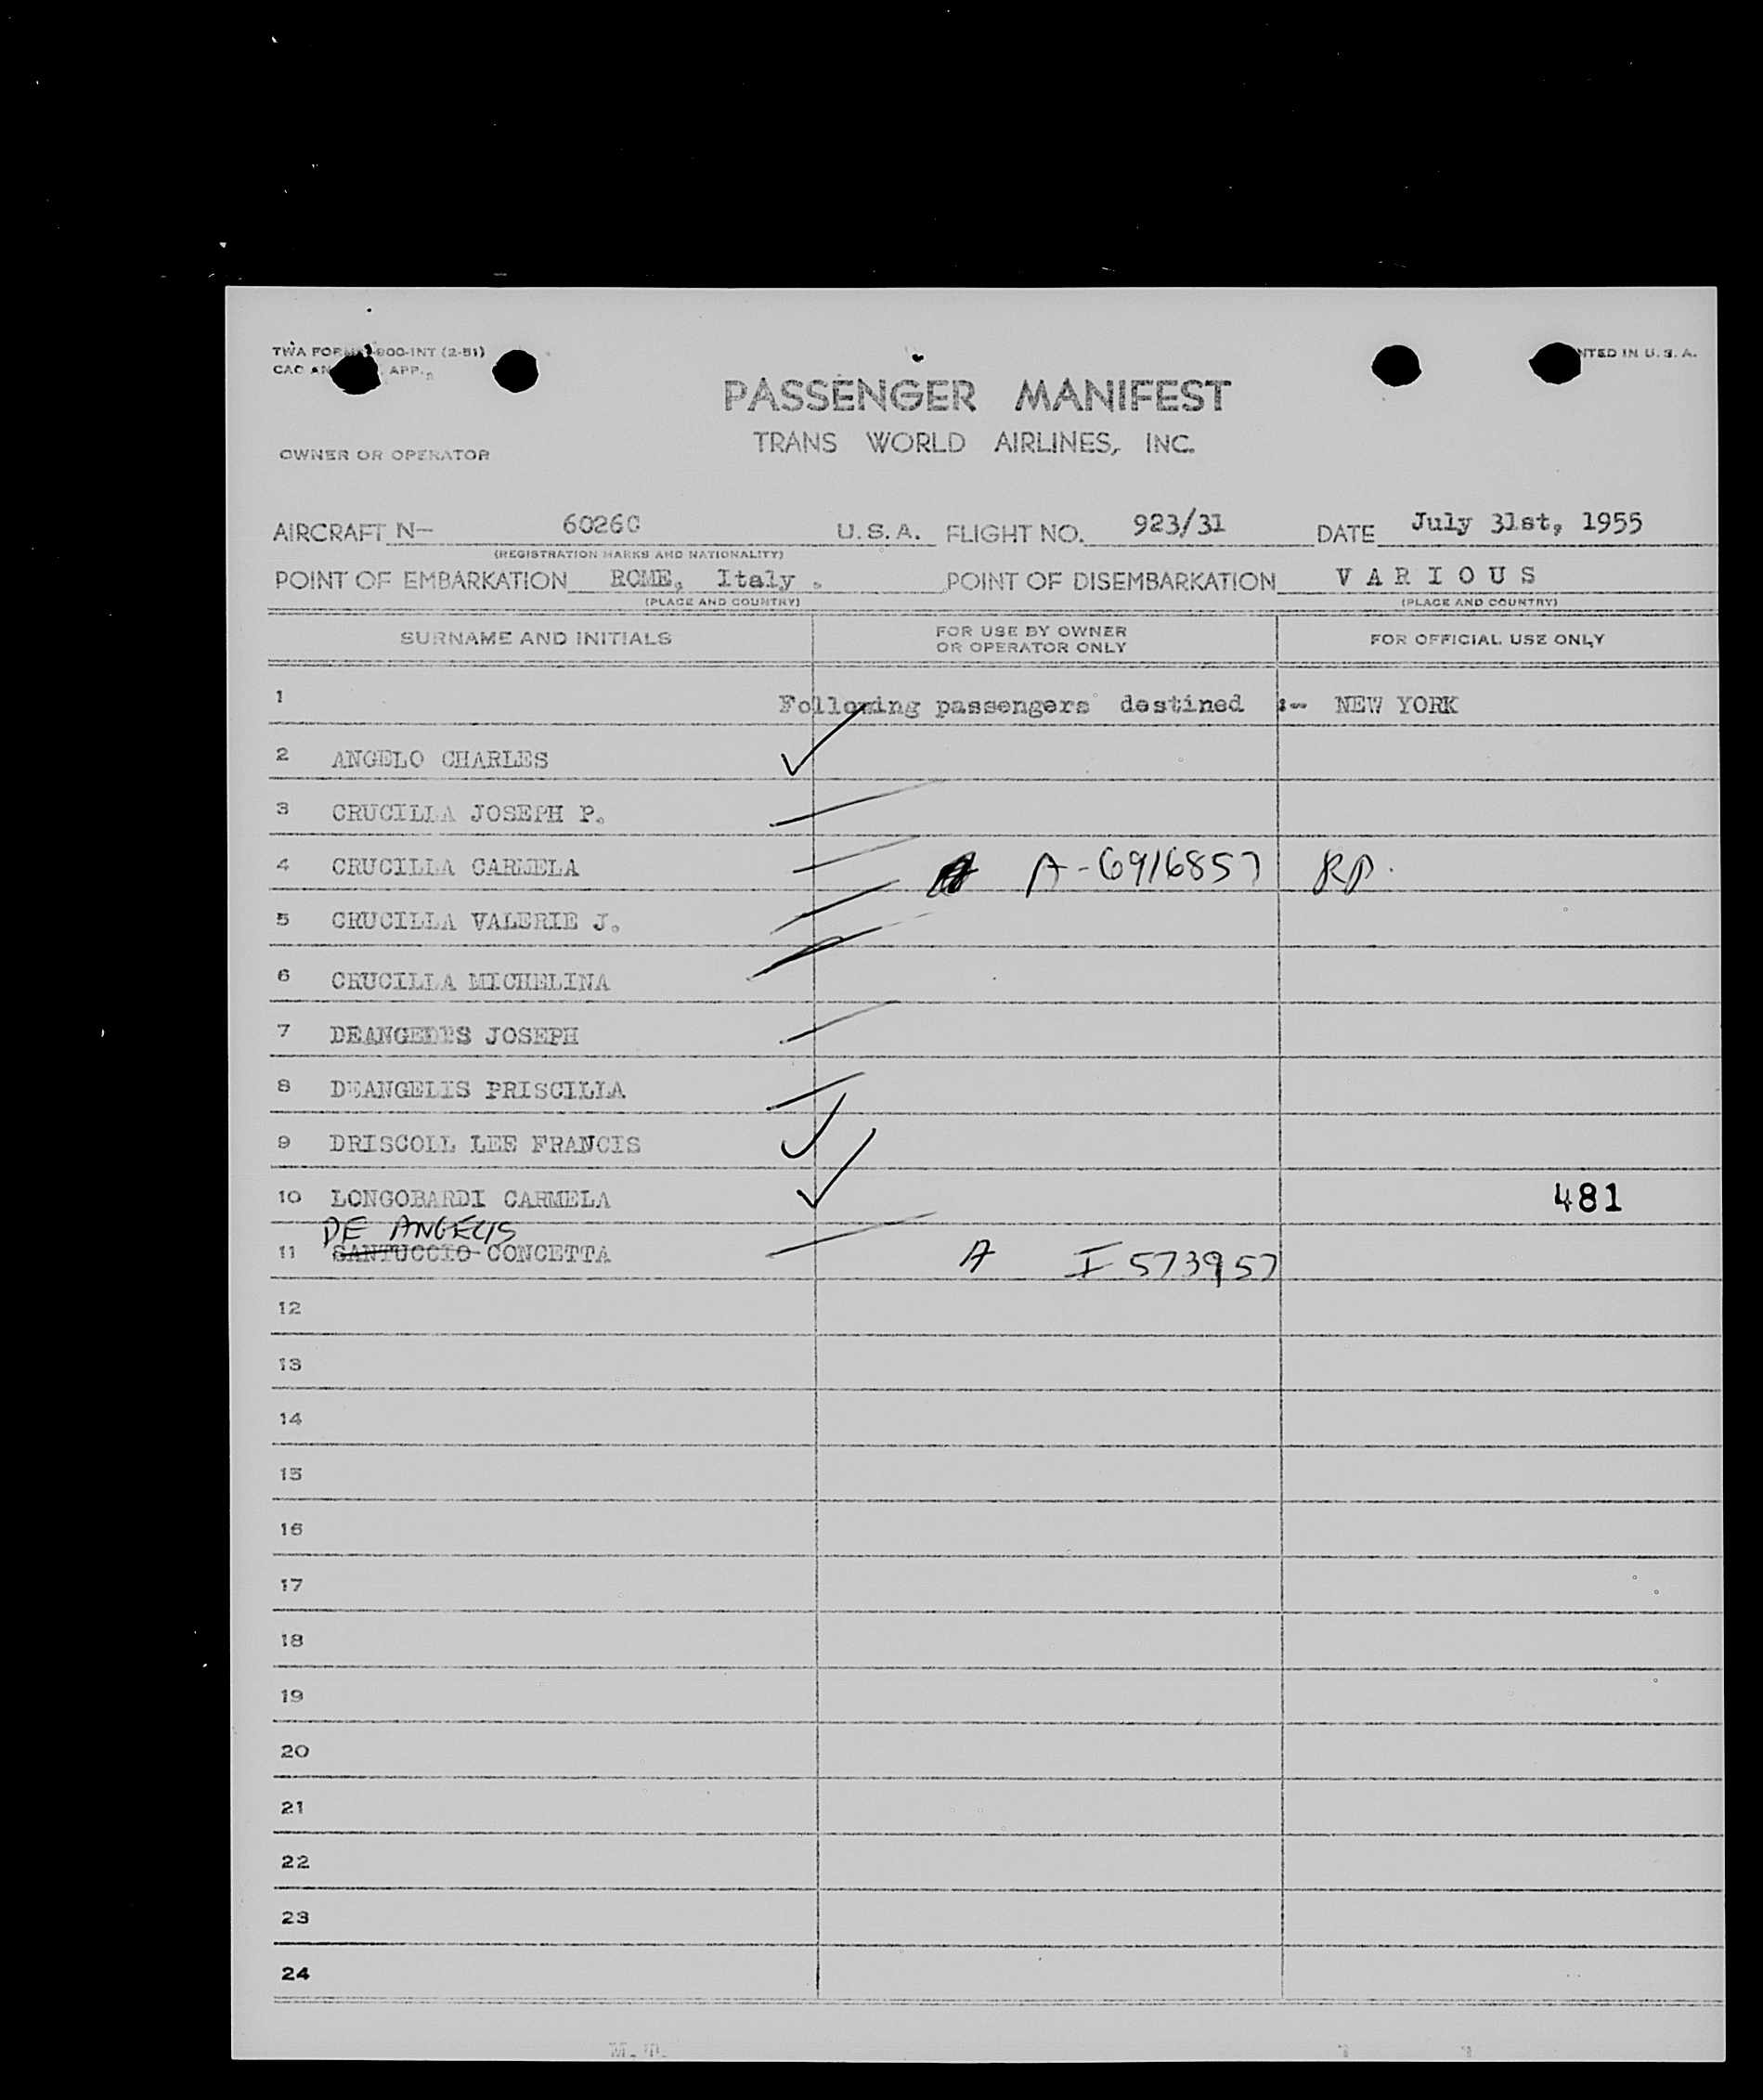 TWA FORM 800-INT (2-51)
NTED IN U. S. A.
CAC AN APP.
PASSENGER MANIFEST
TRANS WORLD AIRLINES, INC.
OWNER OR OPERATOR
AIRCRAFT N- 6026C U.S.A. FLIGHT NO. 923/31 DATE July 31st, 1955
(REGISTRATION MARKS AND NATIONALITY)
POINT OF EMBARKATION ROME, Italy . POINT OF DISEMBARKATION V A R I O U S
(PLACE AND COUNTRY) (PLACE AND COUNTRY)
SURNAME AND INITIALS FOR USE BY OWNER OR OPERATOR ONLY FOR OFFICIAL USE ONLY
1 Following passengers destined :- NEW YORK
2 ANGELO CHARLES
3 CRUCILLA JOSEPH P.
4 CRUCILLA CARMELA A-6916857 RP.
5 CRUCILLA VALERIE J.
6 CRUCILLA MICHELINA
7 DEANGELIS JOSEPH
8 DEANGELIS PRISCILLA
9 DRISCOLL LEE FRANCIS
10 LONGOBARDI CARMELA 481
DE ANGELIS
11 SANTUCCIO CONCETTA A I 573957
12
13
14
15
16
17
18
19
20
21
22
23
24